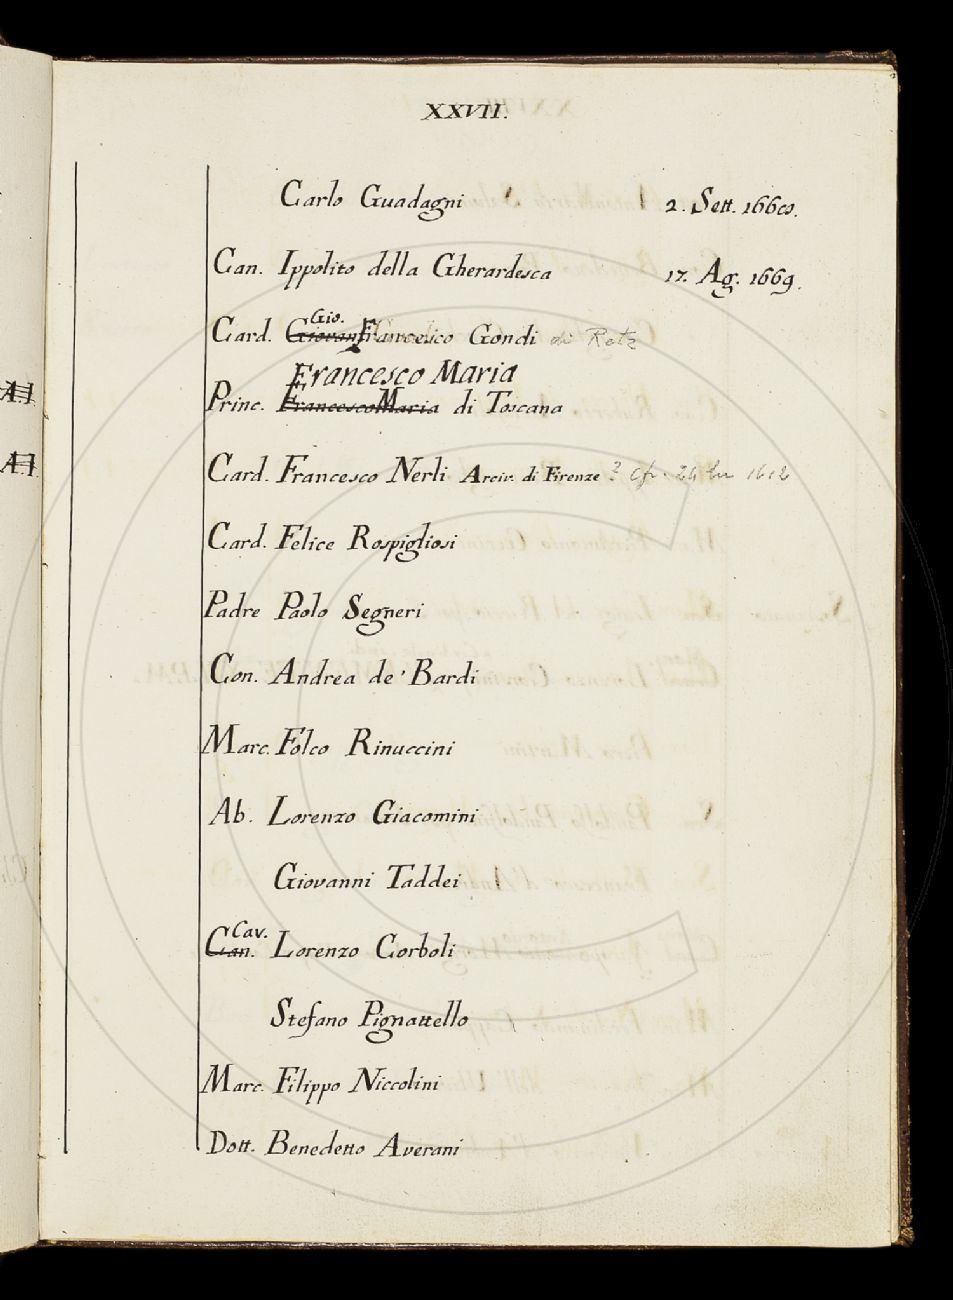 XXVII.
Carlo Guadagni 2. Sett. 1669.
Can. Ippolito della Gherardesca 17. Ag. 1669.
Gio.
Card. Giovanfrancesco Gondi di Retz
Francesco Maria
Princ. Francesco Maria di Toscana
Card. Francesco Nerli Arciv. di Firenze ? cfr. 1612
Card. Felice Rospigliosi
Padre Paolo Segneri
Con. Andrea de' Bardi
Marc. Folco Rinuccini
Ab. Lorenzo Giacomini
Giovanni Taddei
Cav.
Can. Lorenzo Corboli
Stefano Pignattello
Marc. Filippo Niccolini
Dott. Benedetto Averani